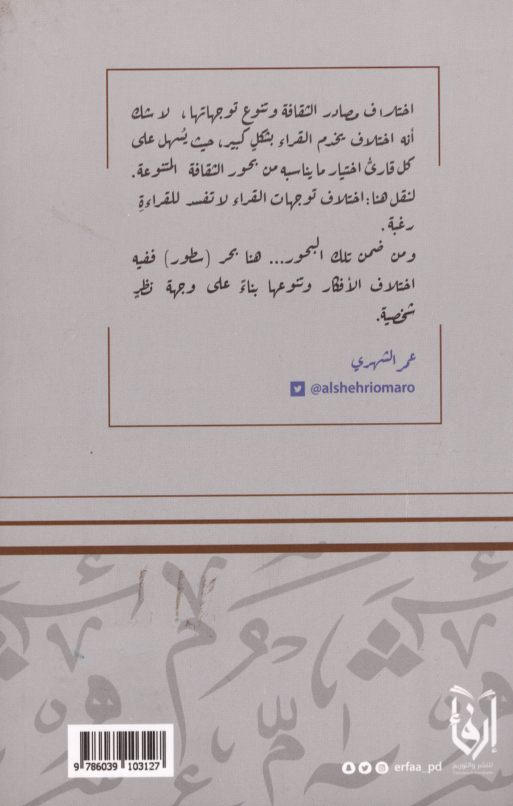 اختلاف مصادر الثقافة وتنوع توجهاتها، لا شك
أنه اختلاف يخدم القراء بشكلٍ كبير، حيث يُسهل على
كل قارئ اختيار ما يناسبه من بحور الثقافة المتنوعة.
لنقل هنا: اختلاف توجهات القراء لا تفسد للقراءةِ
رغبة.
ومن ضمن تلك البحور... هنا بحر (سطور) ففيه
اختلاف الأفكار وتنوعها بناءً على وجهة نظرٍ
شخصية.
عمر الشهري
@alshehriomaro
إرفاء
للنشر والتوزيع
erfaa_pd
9 786039 103127